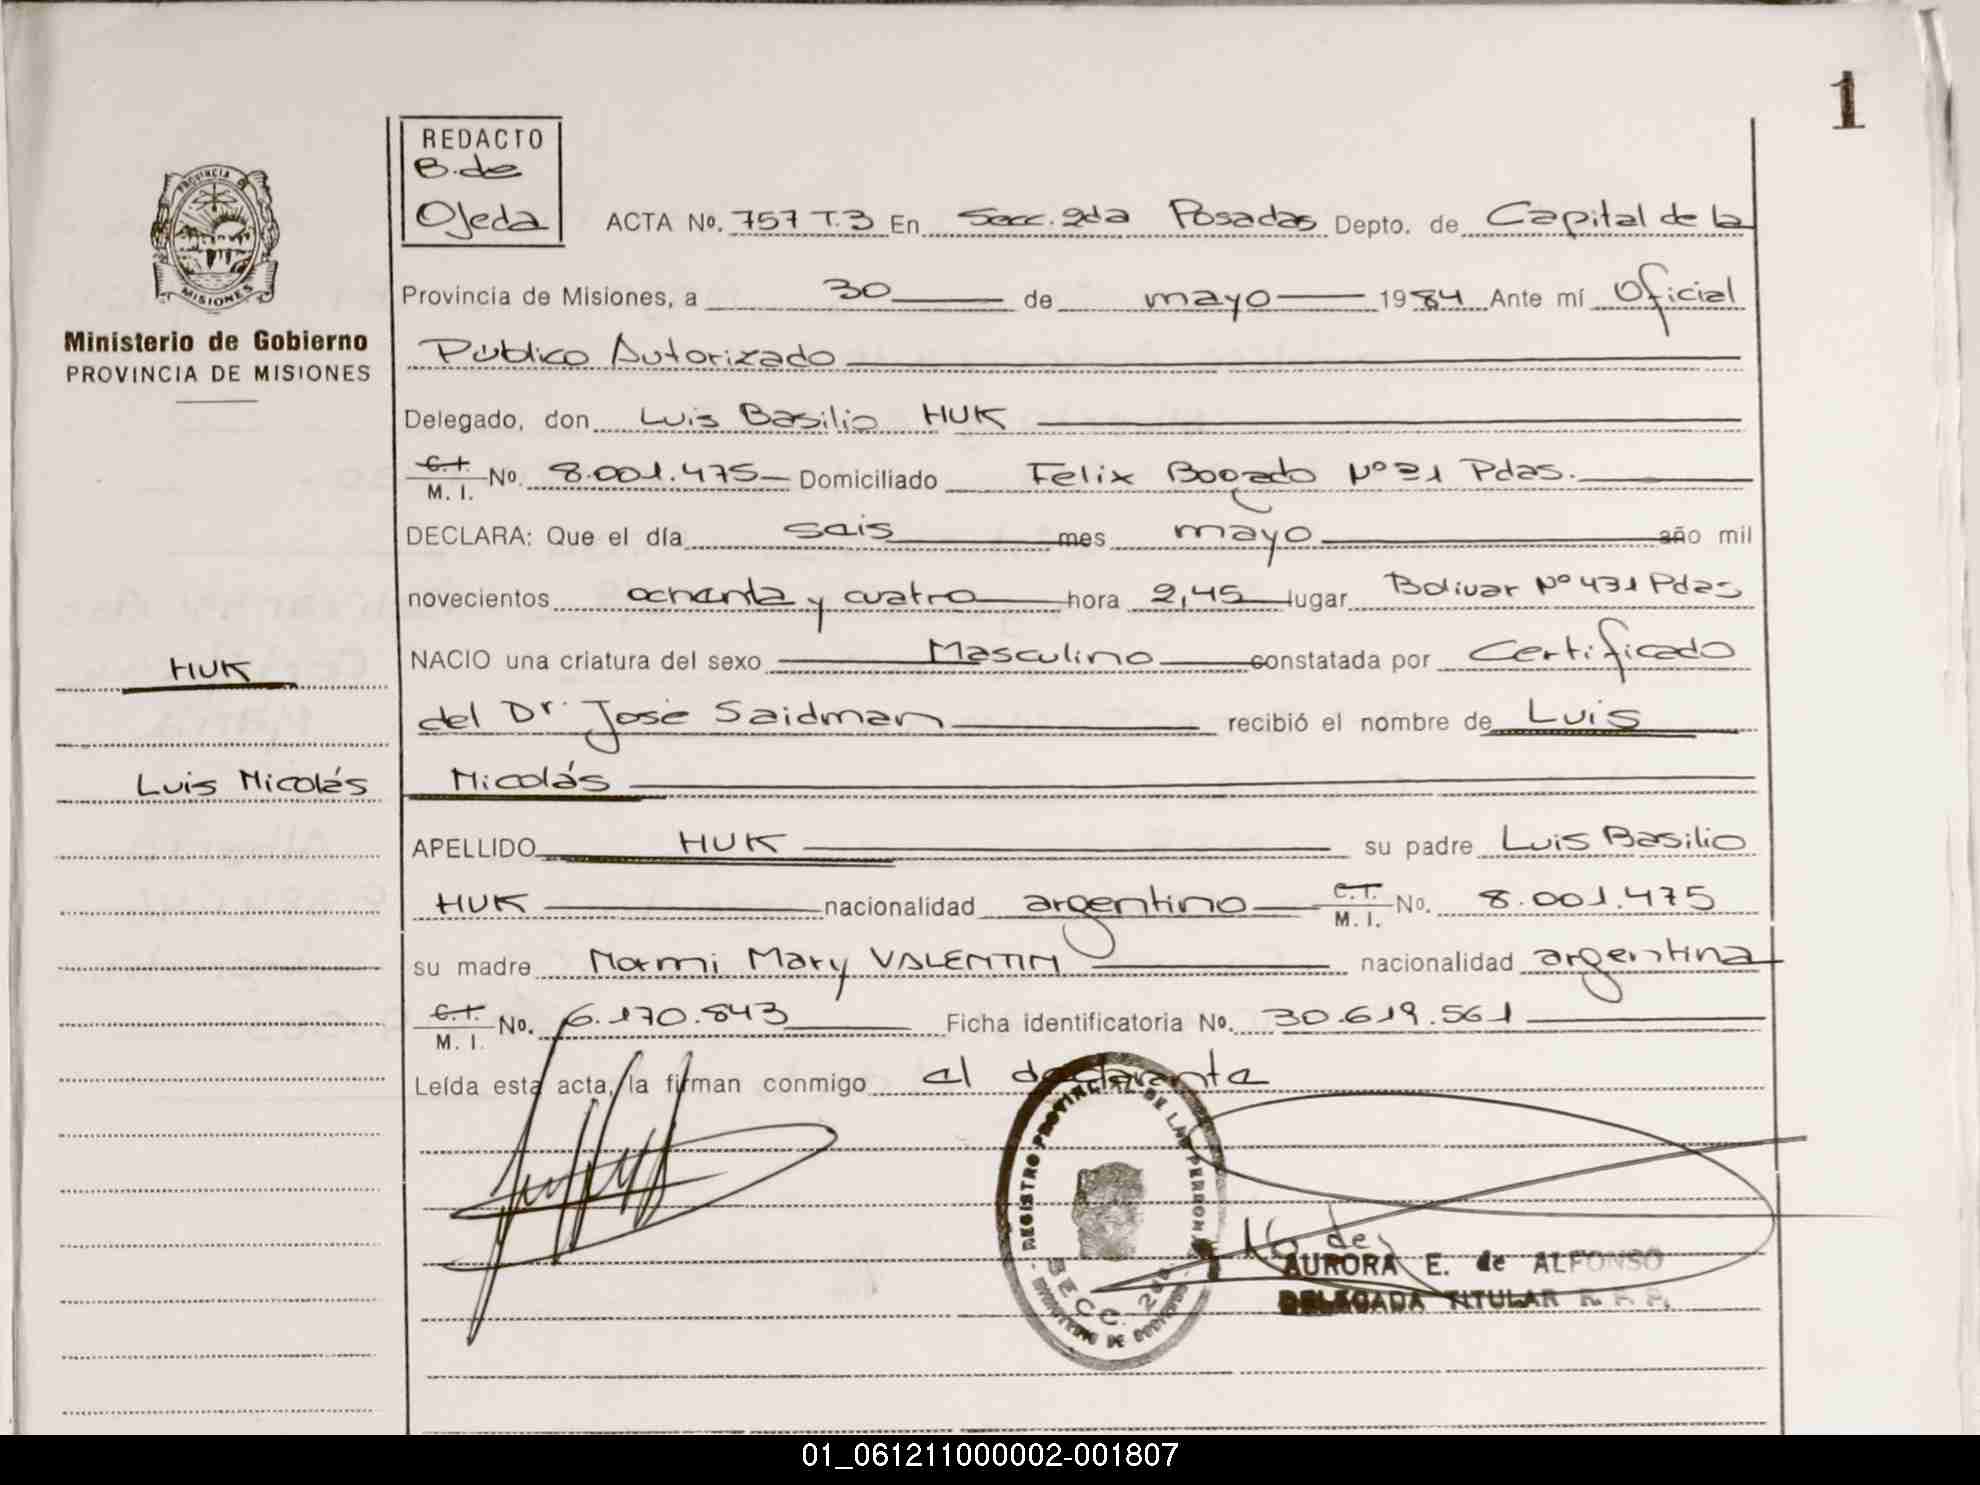 1
REDACTO
B. de
Ojeda
ACTA No. 757 T.3 En Secc. 2da Posadas Depto. de Capital de la
PROVINCIA DE
MISIONES
Provincia de Misiones, a 30 de mayo 1984 Ante mí Oficial
Ministerio de Gobierno
PROVINCIA DE MISIONES
Público Autorizado
Delegado, don Luis Basilio HUK
C.I. M. I. No. 8.001.475 Domiciliado Felix Bogado Nº 31 Pdas.
DECLARA: Que el día seis mes mayo año mil
novecientos ochenta y cuatro hora 2,45 lugar Bolivar Nº 431 Pdas
NACIO una criatura del sexo Masculino constatada por Certificado
HUK
del Dr. José Saidman recibió el nombre de Luis
Luis Nicolás
Nicolás
APELLIDO HUK su padre Luis Basilio
HUK nacionalidad argentino C.I. M. I. No. 8.001.475
su madre Normi Mary VALENTIN nacionalidad argentina
C.I. M. I. No. 6.170.843 Ficha identificatoria No. 30.619.561
Leída esta acta, la firman conmigo el declarante
REGISTRO PROVINCIAL DE LAS PERSONAS
SECC. 2da
MINISTERIO DE GOBIERNO
AURORA E. de ALFONSO
DELEGADA TITULAR R. P. P.
01_061211000002-001807